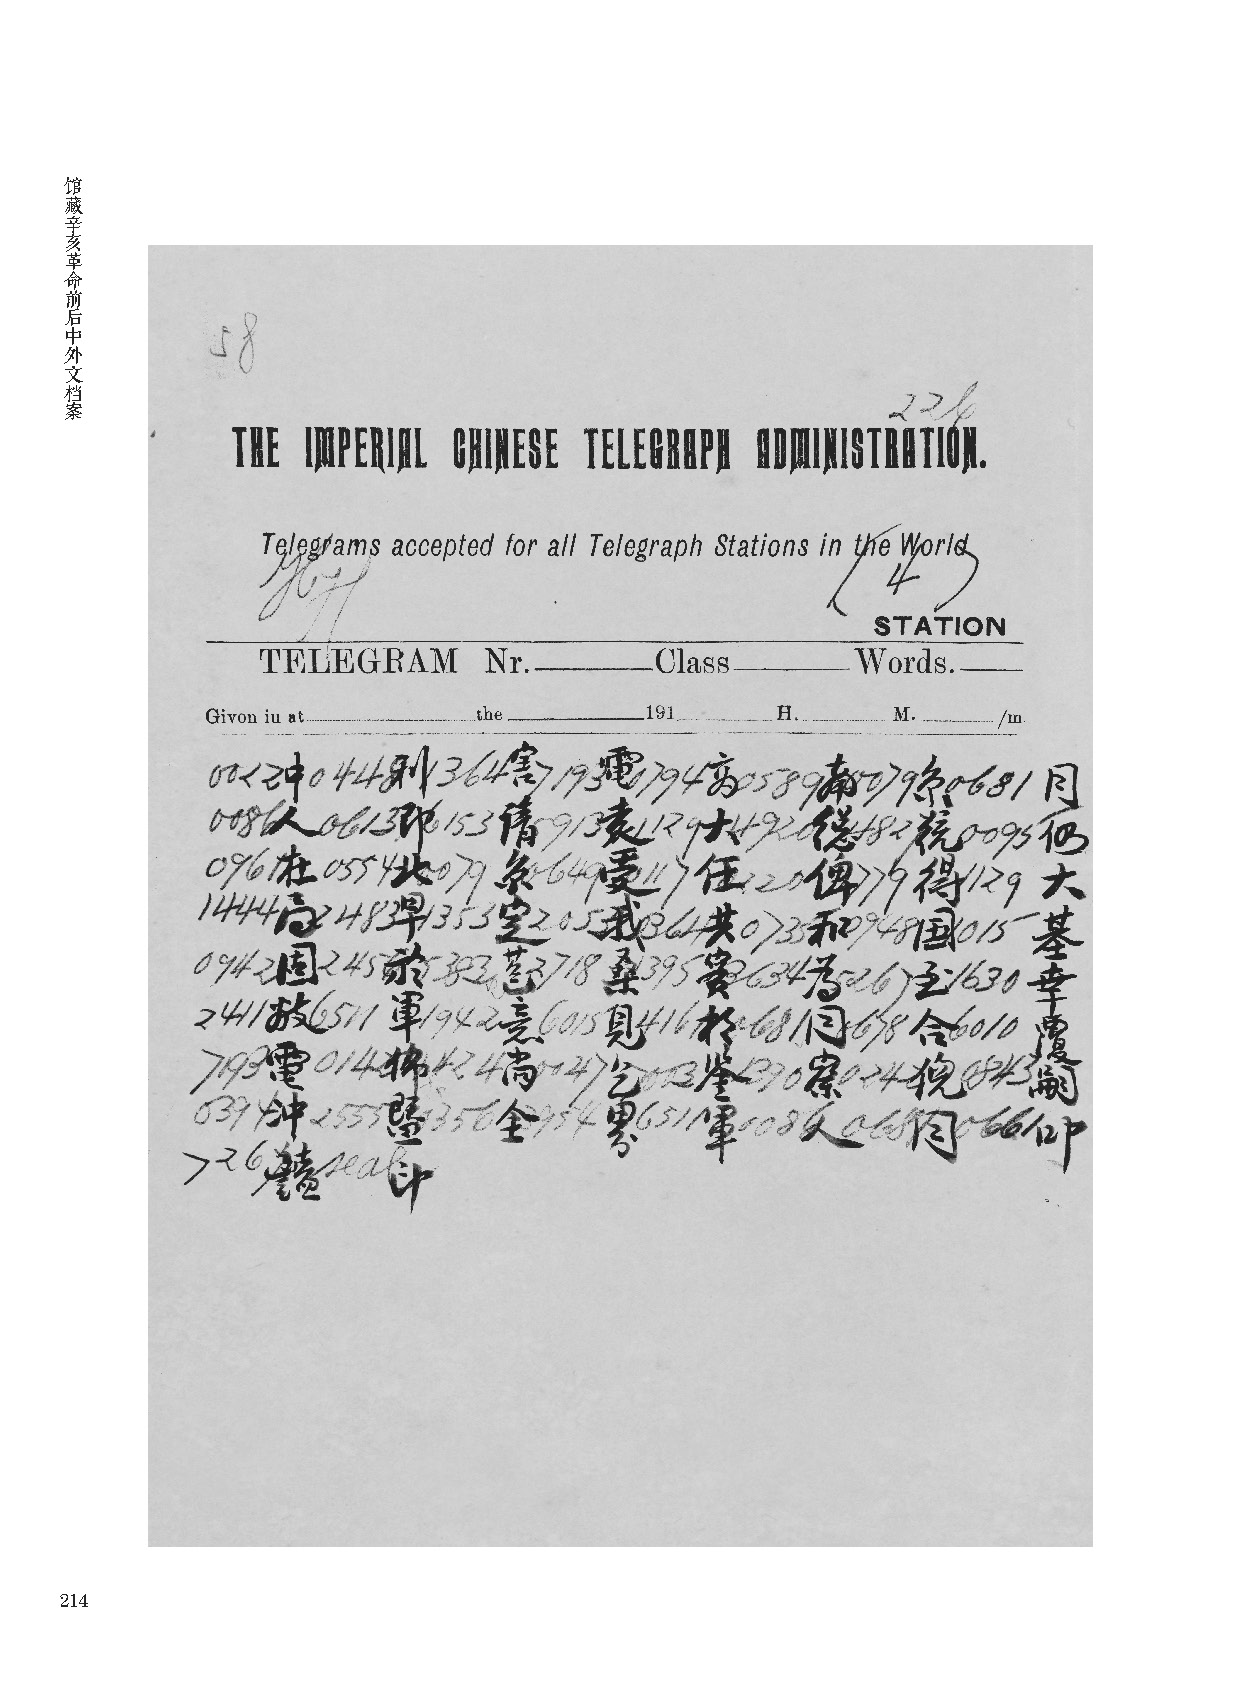 馆藏辛亥革命前后中外文档案
58
226
THE IMPERIAL CHINESE TELEGRAPH ADMINISTRATION.
Telegrams accepted for all Telegraph Stations in the World
(4)
STATION
TELEGRAM Nr. Class Words.
Givon iu at the 191 H. M. /m
0022中0448則1364害7193電0794商0589南0079京0681同
0086人0613即6153請5913袁1129大4920總4827統0095仍
0961在0554北0079京0649受0117任 俾 得1129大
1444局2483早1353定2053我0364共0735和0948国1015基
0942固245 於 5383 2718桑1395實3634為5267至1630幸
2411故6511軍1942意6015見4161於0681同0678合6010覆
7193電0142佛1424尚 鉴 察0244貌0843嗣
0394冲2555暨0356全3954界6511軍0086人0681同0661叩
726 seal 印
214